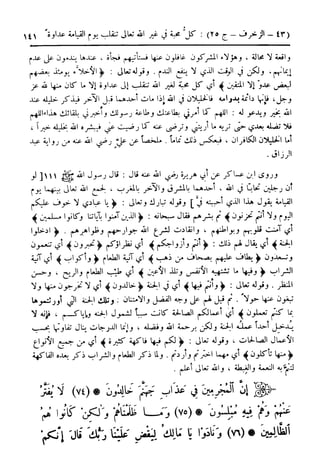 (٤٣) - الزخرف - ج ٢٥) : كل محبة في غير الله تعالى تنقلب يوم القيامة عداوة ١٤١
واقعة لا محالة ، وهؤلاء المشركون غافلون عنها فستأتيهم فجأة ، عندها يندمون على عدم
إيمانهم . ولكن في الوقت الذي لا ينفع الندم . وقوله تعالى : ﴿ الأخلاّء يومئذ بعضهم
لبعض عدوّ إلا المتقين ﴾ أي كل محبة لغير الله تنقلب إلى عداوة إلا ما كان منها لله عز
وجل ، فإنها دائمة بدوامه فالخليلان في الله إذا مات أحدهما قبل الآخر فيذكر خليله عند
الله بخير ويدعو له : اللهم كما أمرني بطاعتك وطاعة رسولك وأخبرني بلقائك هذا اللهم
فلا تضله بعدي حتى تريه ما أريتني وترضى عنه كما رضيت عني فيبشره الله بخليله خيراً ،
أما الخليلان الكافران ، فبعكس ذلك تماماً . ملخصاً عن علي رضي الله عنه من رواية عبد
الرزاق .
وروى ابن عساكر عن أبي هريرة رضي الله عنه قال : قال رسول الله ﷺ [ لو
أن رجلين تحابّا في الله ، أحدهما بالمشرق والآخر بالمغرب ، لجمع الله تعالى بينهما يوم
القيامة يقول هذا الذي أحببته فيّ ] وقوله تبارك وتعالى : ﴿ يا عبادي لا خوف عليكم
اليوم ولا أنتم تحزنون ﴾ ثم بشرهم فقال سبحانه : ﴿ الذين آمنوا بآياتنا وكانوا مسلمين ﴾
أي آمنت قلوبهم وبواطنهم ، وانقادت لشرع الله جوارحهم وظواهرهم . ﴿ ادخلوا
الجنة ﴾ أي يقال لهم ذلك : ﴿ أنتم وأزواجكم ﴾ أي نظراؤكم ﴿ تحبرون ﴾ أي تنعمون
وتسعدون ﴿ يطاف عليهم بصحاف من ذهب ﴾ أي آنية الطعام ﴿ وأكواب ﴾ أي آنية
الشراب ﴿ وفيها ما تشتهيه الأنفس وتلذ الأعين ﴾ أي طيب الطعام والريح ، وحسن
المنظر . وقوله تعالى : ﴿ وأنتم فيها ﴾ أي في الجنة ﴿ خالدون ﴾ أي لا تخرجون منها ولا
تبغون عنها حولاً . ثم قيل لهم على وجه الفضل والامتنان : ﴿ وتلك الجنة التي أورثتموها
بما كنتم تعملون ﴾ أي أعمالكم الصالحة كانت سبباً لشمول الجنة وإياكم ، فإنه لا
يُدخل أحداً عملُه الجنة ولكن برحمة الله وفضله ، وإنما الدرجات ينال تفاوتها بحسب
الأعمال الصالحات ، وقوله تعالى : ﴿ لكم فيها فاكهة كثيرة ﴾ أي من جميع الأنواع
﴿ منها تأكلون ﴾ أي مهما اخترتم وأردتم . ولما ذكر الطعام والشراب ذكر بعده الفاكهة
لتتم به النعمة والغبطة ، والله تعالى أعلم .
إِنَّ ٱلْمُجْرِمِينَ فِي عَذَابِ جَهَنَّمَ خَالِدُونَ ﴿٧٤﴾ لَا يُفَتَّرُ
عَنْهُمْ وَهُمْ فِيهِ مُبْلِسُونَ ﴿٧٥﴾ وَمَا ظَلَمْنَاهُمْ وَلَٰكِن كَانُوا هُمُ
ٱلظَّالِمِينَ ﴿٧٦﴾ وَنَادَوْا يَا مَالِكُ لِيَقْضِ عَلَيْنَا رَبُّكَ قَالَ إِنَّكُم